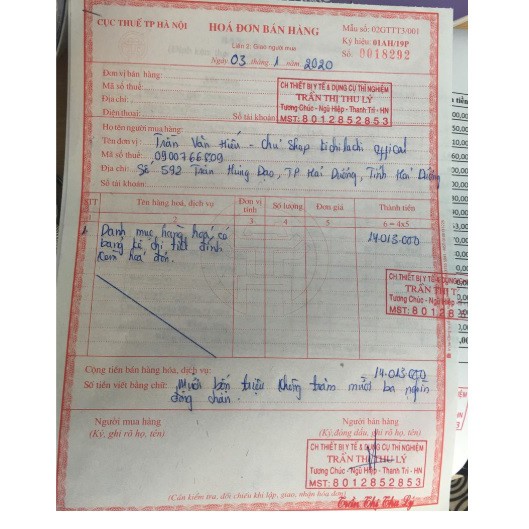 CỤC THUẾ TP HÀ NỘI
HOÁ ĐƠN BÁN HÀNG
Mẫu số: 02GTTT3/001
Ký hiệu: 01AH/19P
Liên 2: Giao người mua
Số: 0018292
Ngày 03 tháng 1 năm 2020
Đơn vị bán hàng:
Mã số thuế:
Địa chỉ:
Điện thoại: Số tài khoản:
CH THIẾT BỊ Y TẾ & DỤNG CỤ THÍ NGHIỆM
TRẦN THỊ THU LÝ
Tương Chúc - Ngũ Hiệp - Thanh Trì - HN
MST: 8012852853
Họ tên người mua hàng:
Tên đơn vị: Trần Văn Hiếu - Chủ Shop
Mã số thuế:
Địa chỉ: Số 592 Trần Hưng Đạo, TP Hải Dương, Tỉnh Hải Dương
Số tài khoản:
STT Tên hàng hoá, dịch vụ Đơn vị tính Số lượng Đơn giá Thành tiền
1 2 3 4 5 6 = 4x5
1 Danh mục hàng hoá có 14.013.000
bảng kê chi tiết đính
kèm hoá đơn.
CH THIẾT BỊ Y TẾ & DỤNG
TRẦN THỊ T
Tương Chúc - Ngũ Hiệp
MST: 80128
Cộng tiền bán hàng hóa, dịch vụ: 14.013.000
Số tiền viết bằng chữ: Mười bốn triệu không trăm mười ba nghìn
đồng chẵn.
Người mua hàng
(Ký, ghi rõ họ, tên)
Người bán hàng
(Ký, đóng dấu, ghi rõ họ, tên)
CH THIẾT BỊ Y TẾ & DỤNG CỤ THÍ NGHIỆM
TRẦN THỊ THU LÝ
Tương Chúc - Ngũ Hiệp - Thanh Trì - HN
MST: 8012852853
(Cần kiểm tra, đối chiếu khi lập, giao, nhận hóa đơn)
Trần Thị Thu Lý